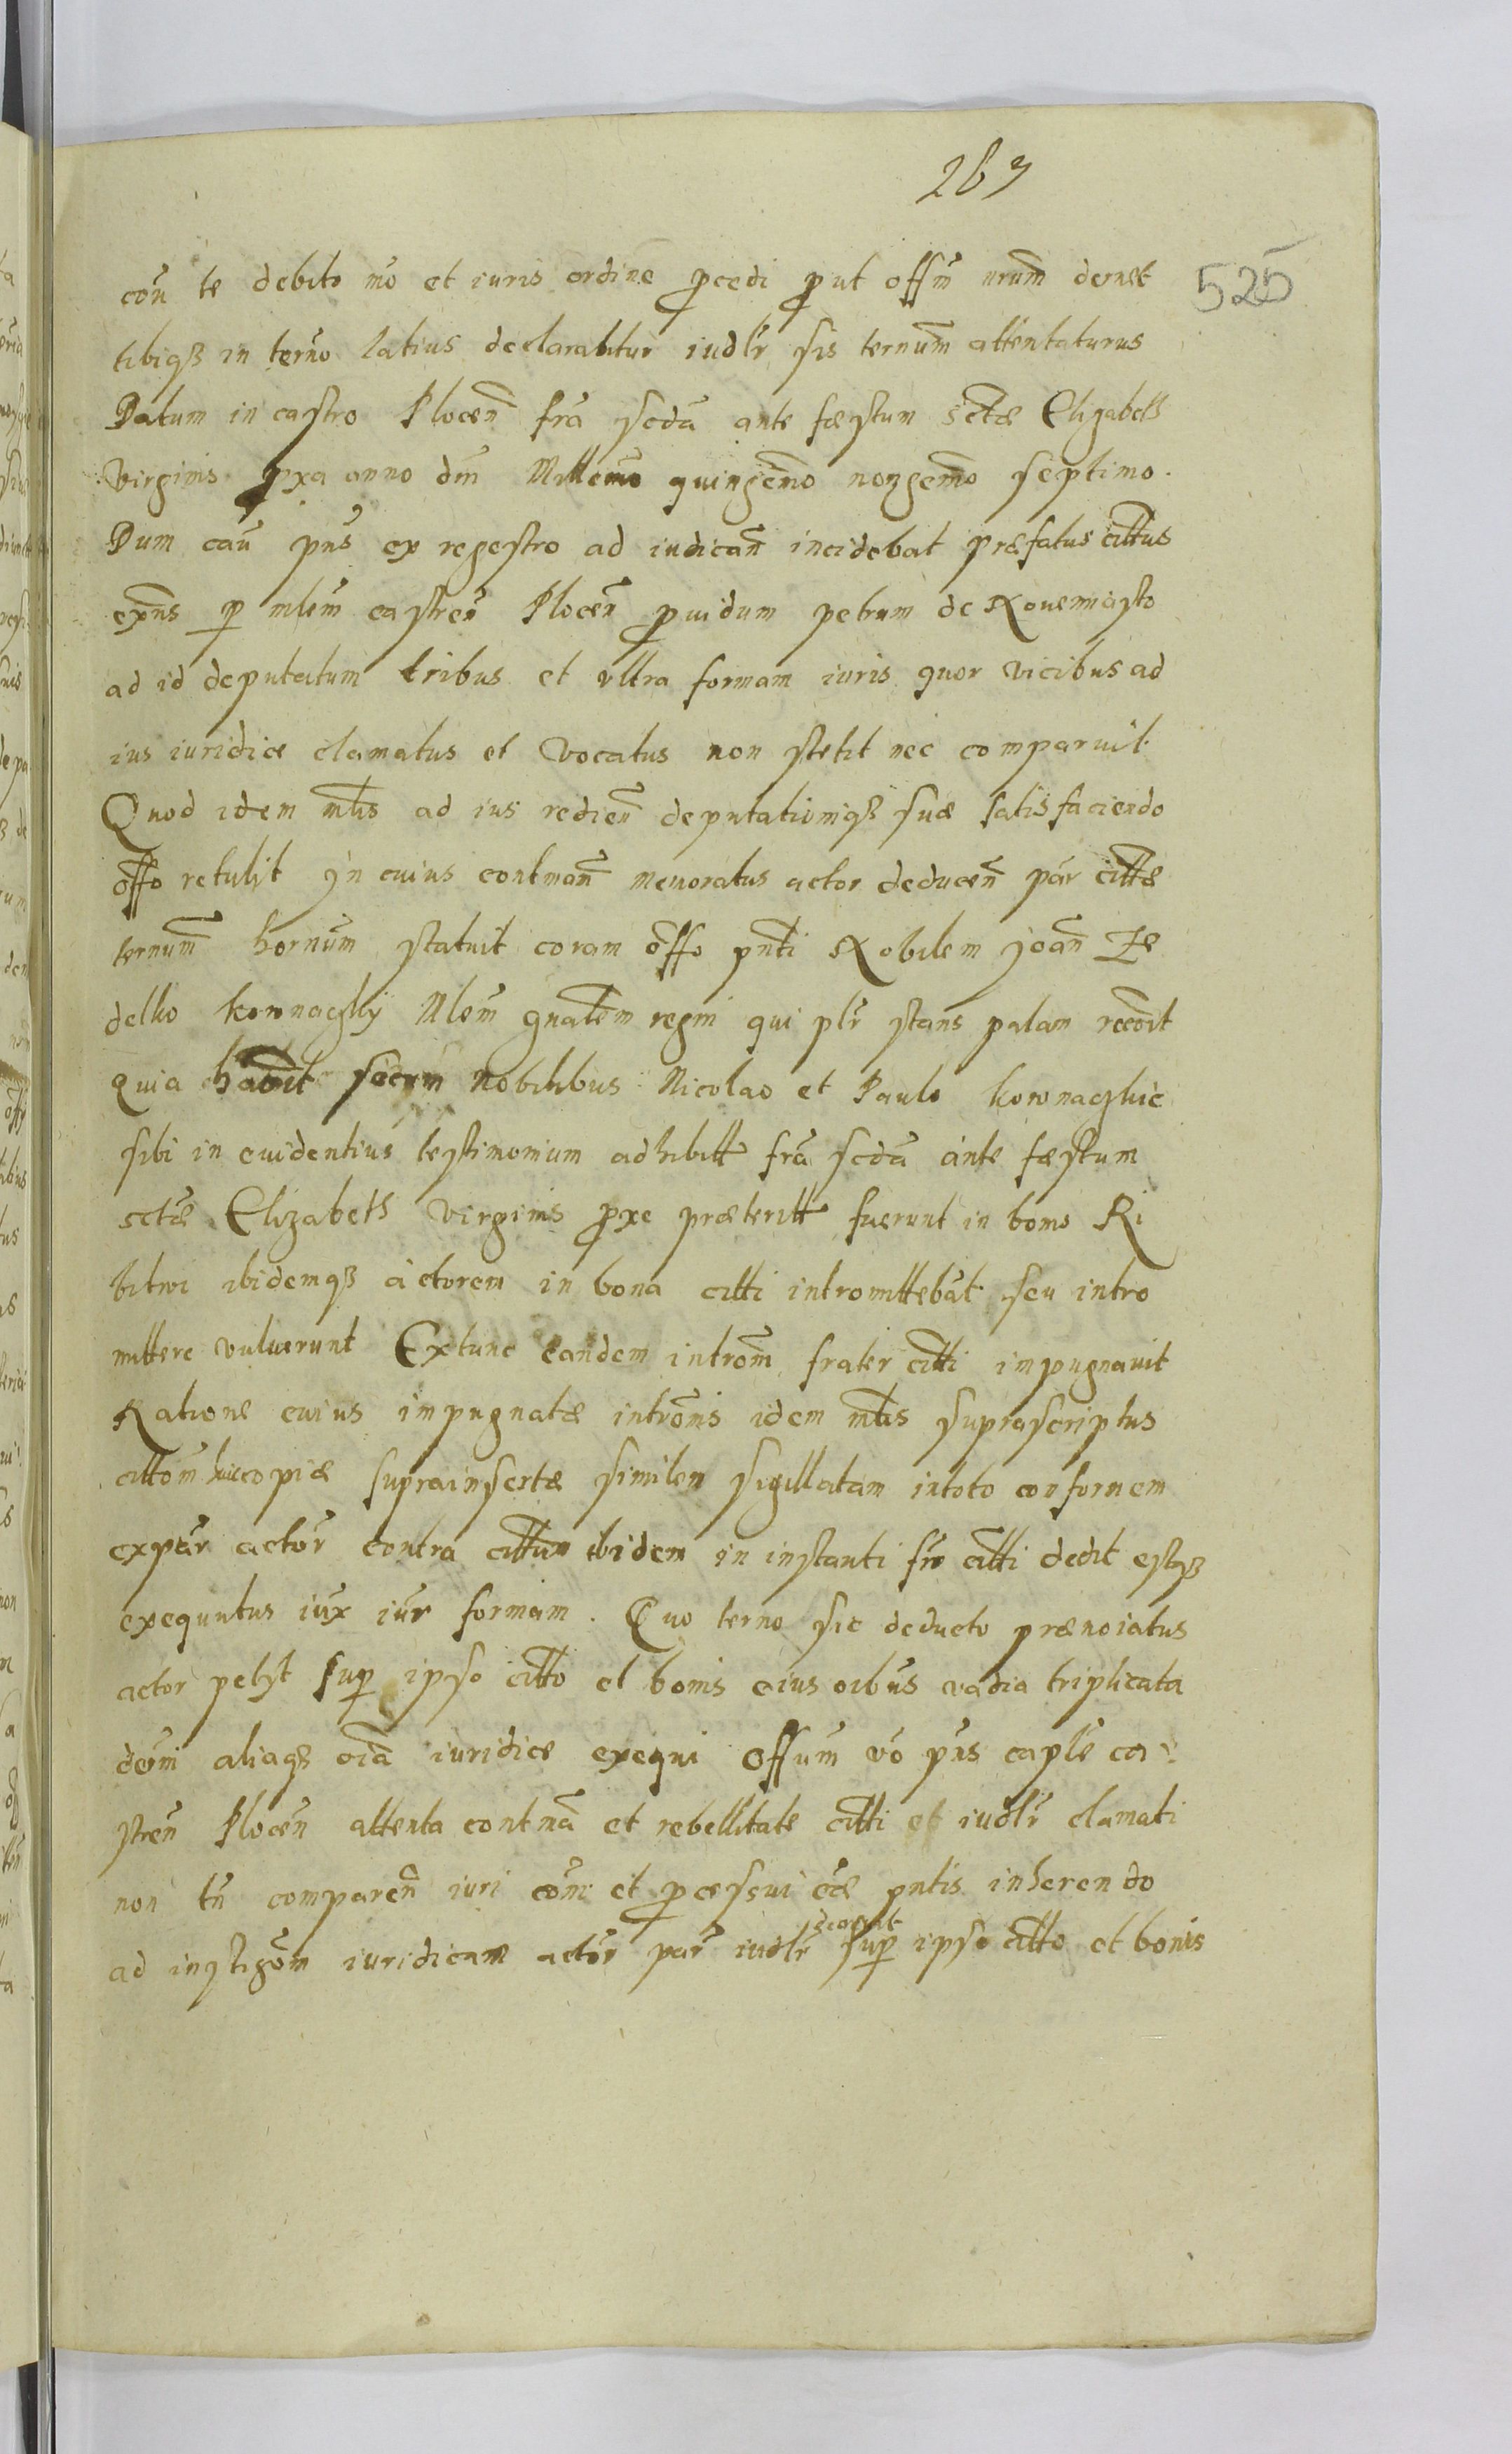 269
525
coñ te debito mō et iuris ordine p̱cedi p̱ut offm̄ nrum̄ dernet
tibiqȝ in terno latius declarabitur iudlr̄ sis ternum̄ attentaturus
Datum in castro Plocen̄ frā scdā ante fæstum sctæ Elizabeth
virginis pxa anno dm̄ Millemo quingem̄o nongem̄o septimo.
Dum cau pn̄s ex regestro ad iudican̄ incidebat præfatus citt̄us
expn̄s p̱ mlem̄ castren̄ Plocen̄ p̱uidum petrum de Nouemiasto
ad id deputatum tribus et vltra formam iuris quor vicibus ad
ius iuridice clamatus et vocatus non stetit nec comparuit
Quod idem mlis̄ ad ius redien̄ deputationiqȝ suæ satisfaciendo
offo retulit yn cuius contman̄ memoratus actor deducen̄ par̄ citt̄æ
ternum̄ hornum statuit coram offo pn̄ti Nobilem Joan̄ Ze
delko kownaczky Mlem̄ gnalem̄ regni qui plr̄ stans palam recōit
quia habuit secum nobilibus Nicolao et Paulo kownaczkie
sibi in euidentius testimonium adhibitt̄ frā scdā ante fæstum
sctæ Elizabeth virginis p̱xe præteritt̄ fuerunt in bonis Ri
bitwi ibidemqȝ actorem in bona citti intromittebāt seu intro
mittere voluerunt Extunc eandem introm̄ frater citti impugnauit
Ratione cuius impugnatæ introm̄is idem mlis̄ suprascriptus
cittom̄ huic copiæ suprainsertæ similem sigillatam in toto conformem
ex par̄ actor̄ contra citt̄um ibidem in instanti frī citti dedit estqȝ
exequutus iux̄ iur̄ formam. Quo terno sic deducto prænoiatus
actor petyt sup̱ ipso citto et bonis eius oibus vadia triplicata
dcōni aliaqȝ oia iuridice exequi Offum vō pn̄s caple ca-
stren̄ Plocen̄ attenta contm̄a et rebellitate citti et iudlr̄ clamati
non tn̄ comparen̄ iuri cōni et p̱cessui cæ pn̄tis inherendo
ad instigōm iuridicam actor̄ par̄ iudlr̄ decreuit sup̱ ipso citto et bonis